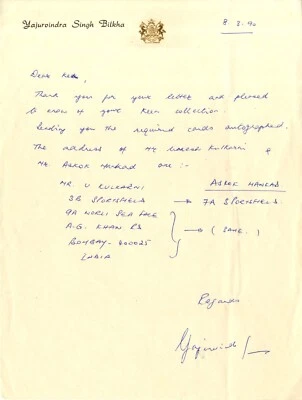 Yajurvindra Singh Bilkha
8-3-90
Dear Ken,
Thank you for your letter and pleased
to know of your keen collection.
Sending you the required cards autographed.
The address of Mr Umesh Kulkarni &
Mr Ashok Mankad are :-
MR. U KULKARNI
ASHOK MANKAD
3B SPORTSFIELD → 7A SPORTSFIELD
9A WORLI SEA FACE
A.G. KHAN RD → (SAME.)
BOMBAY-400025
INDIA
Regards
Yajurvindra